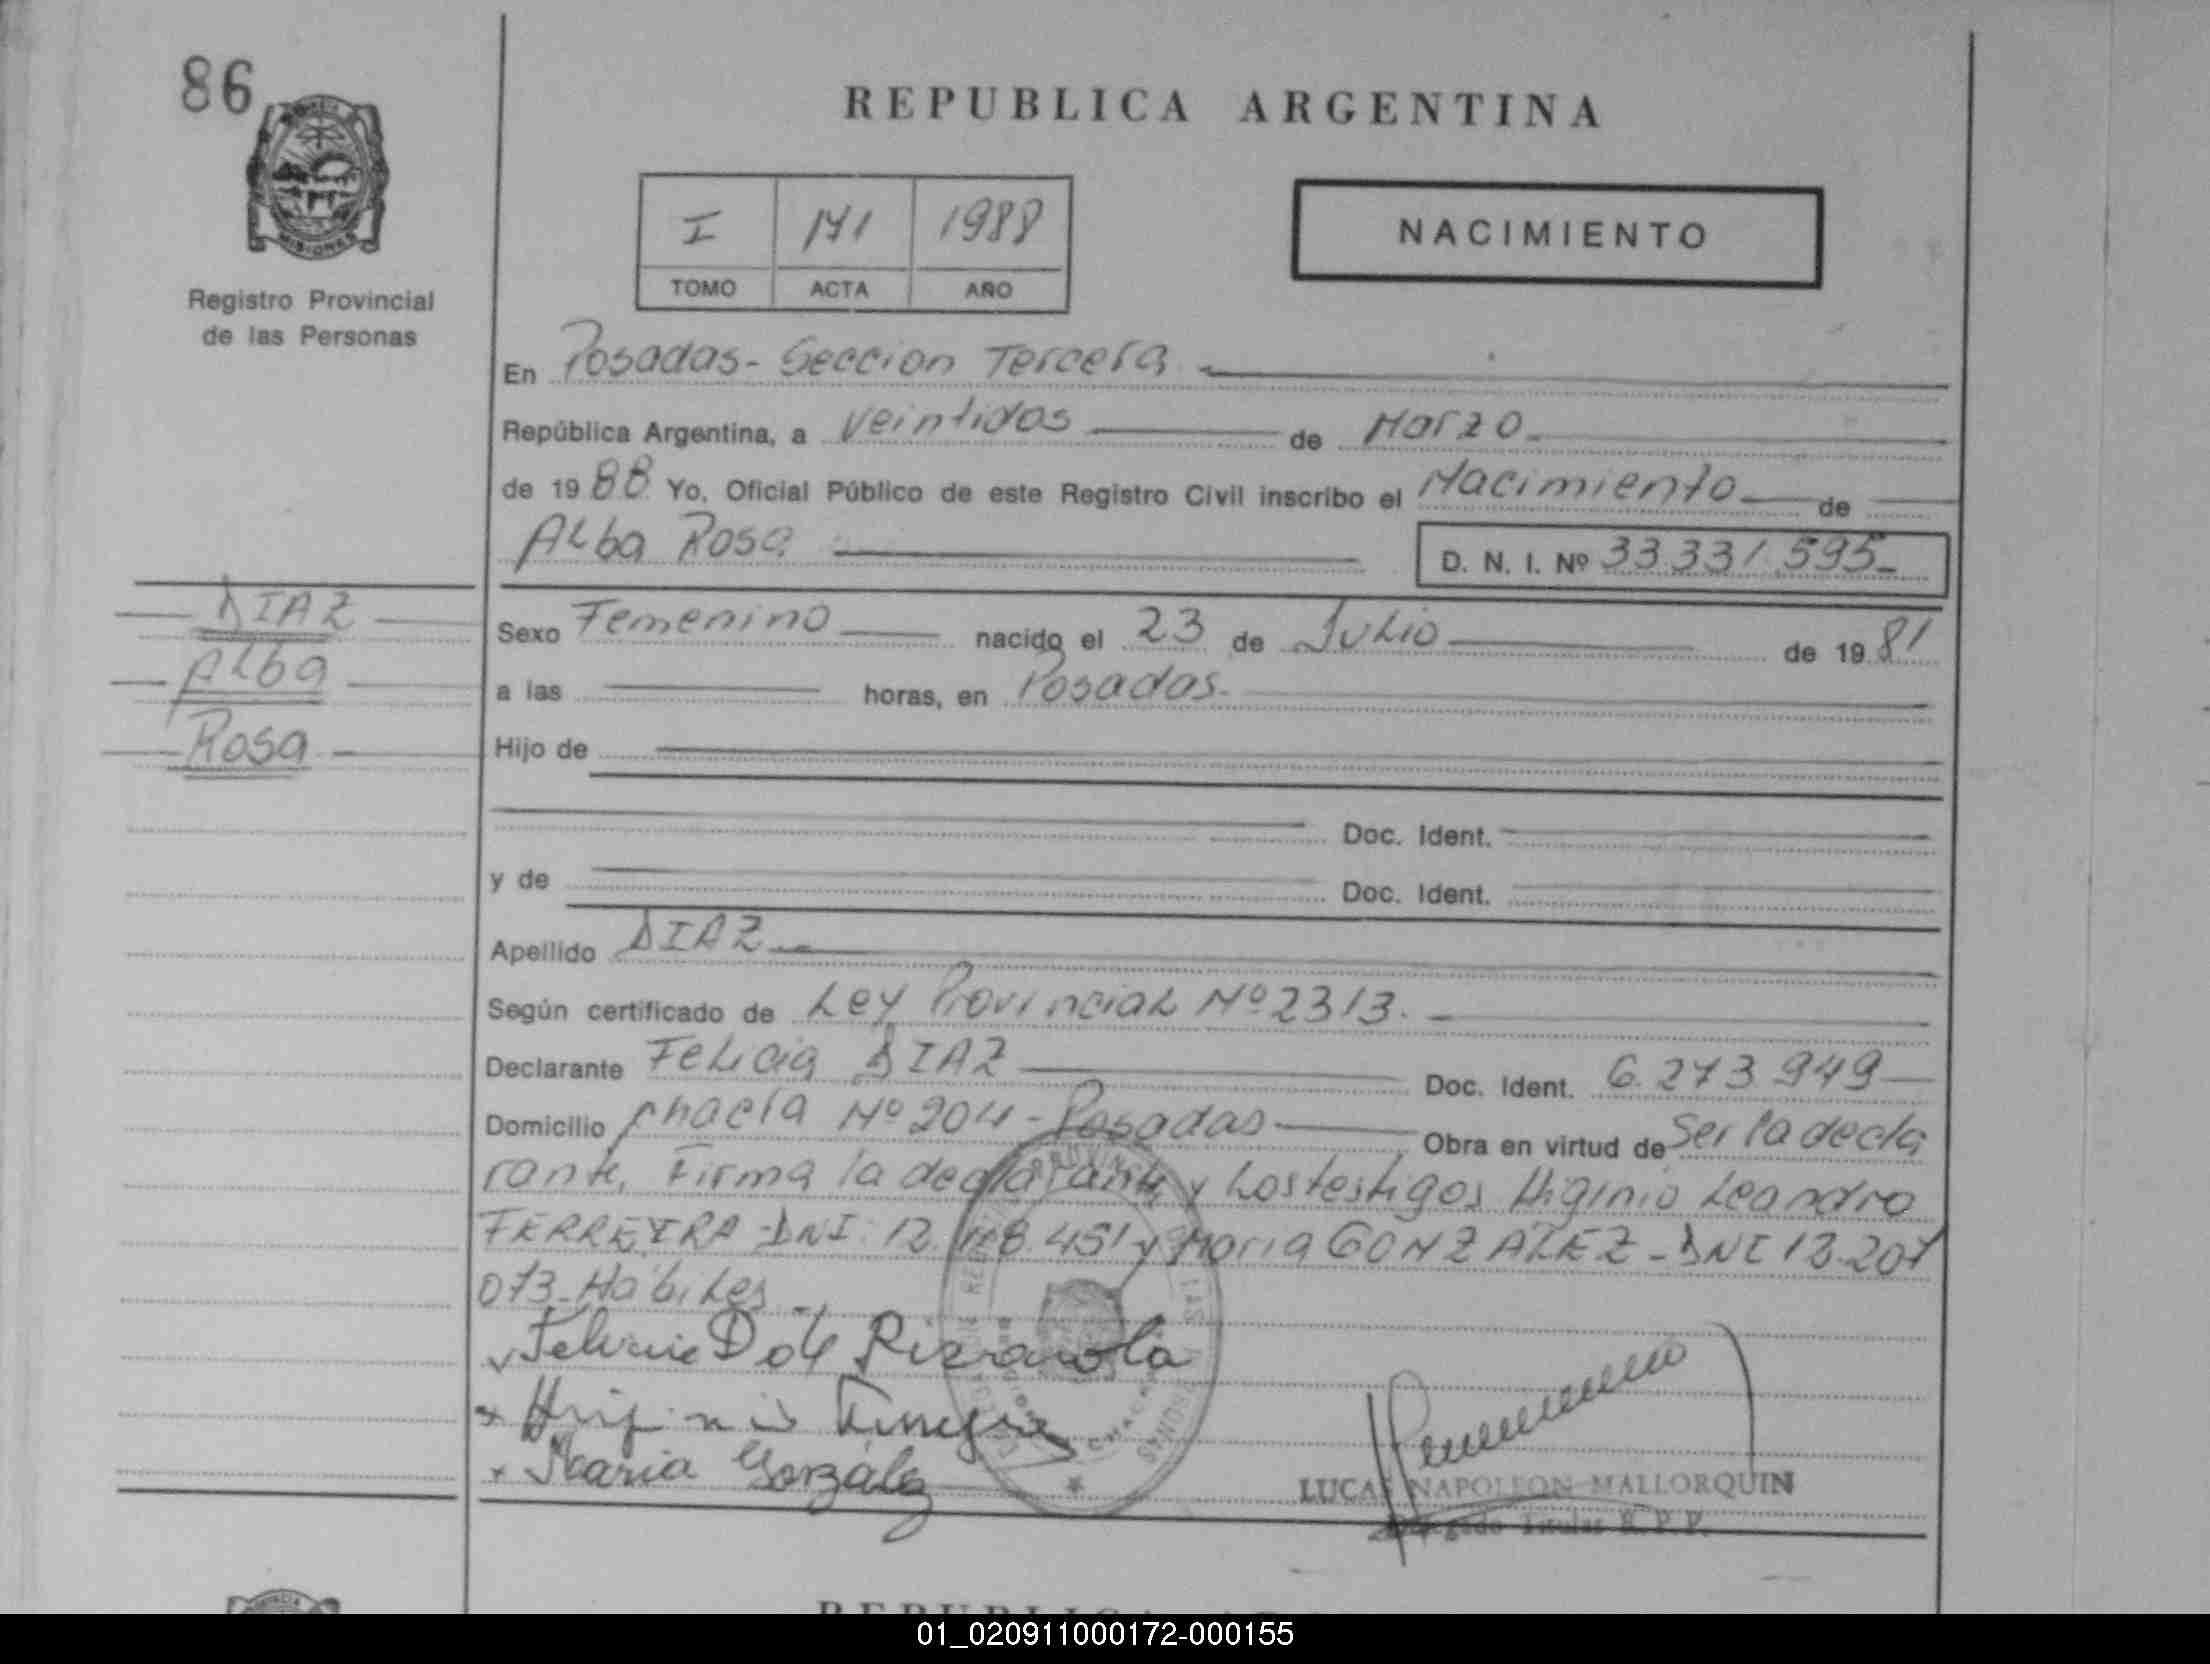 86
REPUBLICA ARGENTINA
MISIONES
I 171 1988
TOMO ACTA AÑO
NACIMIENTO
Registro Provincial
de las Personas
En Posadas - Seccion Tercera
República Argentina, a Veintidos de Marzo
de 1988 Yo, Oficial Público de este Registro Civil inscribo el Nacimiento de
Alba Rosa D. N. I. Nº 33.331.595
DIAZ
Alba
Rosa
Sexo Femenino nacido el 23 de Julio de 1981
a las horas, en Posadas.
Hijo de
Doc. Ident.
y de Doc. Ident.
Apellido DIAZ
Según certificado de Ley Provincial Nº 2313.
Declarante Felicia DIAZ Doc. Ident. 6.273.949
Domicilio chacra Nº 204 - Posadas Obra en virtud de Ser la decla
rante, Firma la declarante y Los testigos Higinio Leandro
FERREYRA - DNI: 12.118.451 y Maria GONZALEZ - DNI 12.207
073 - Hábiles
Maria González
LUCAS NAPOLEON MALLORQUIN
Delegado Titular R. P. P.
REPUBLICA
01_020911000172-000155